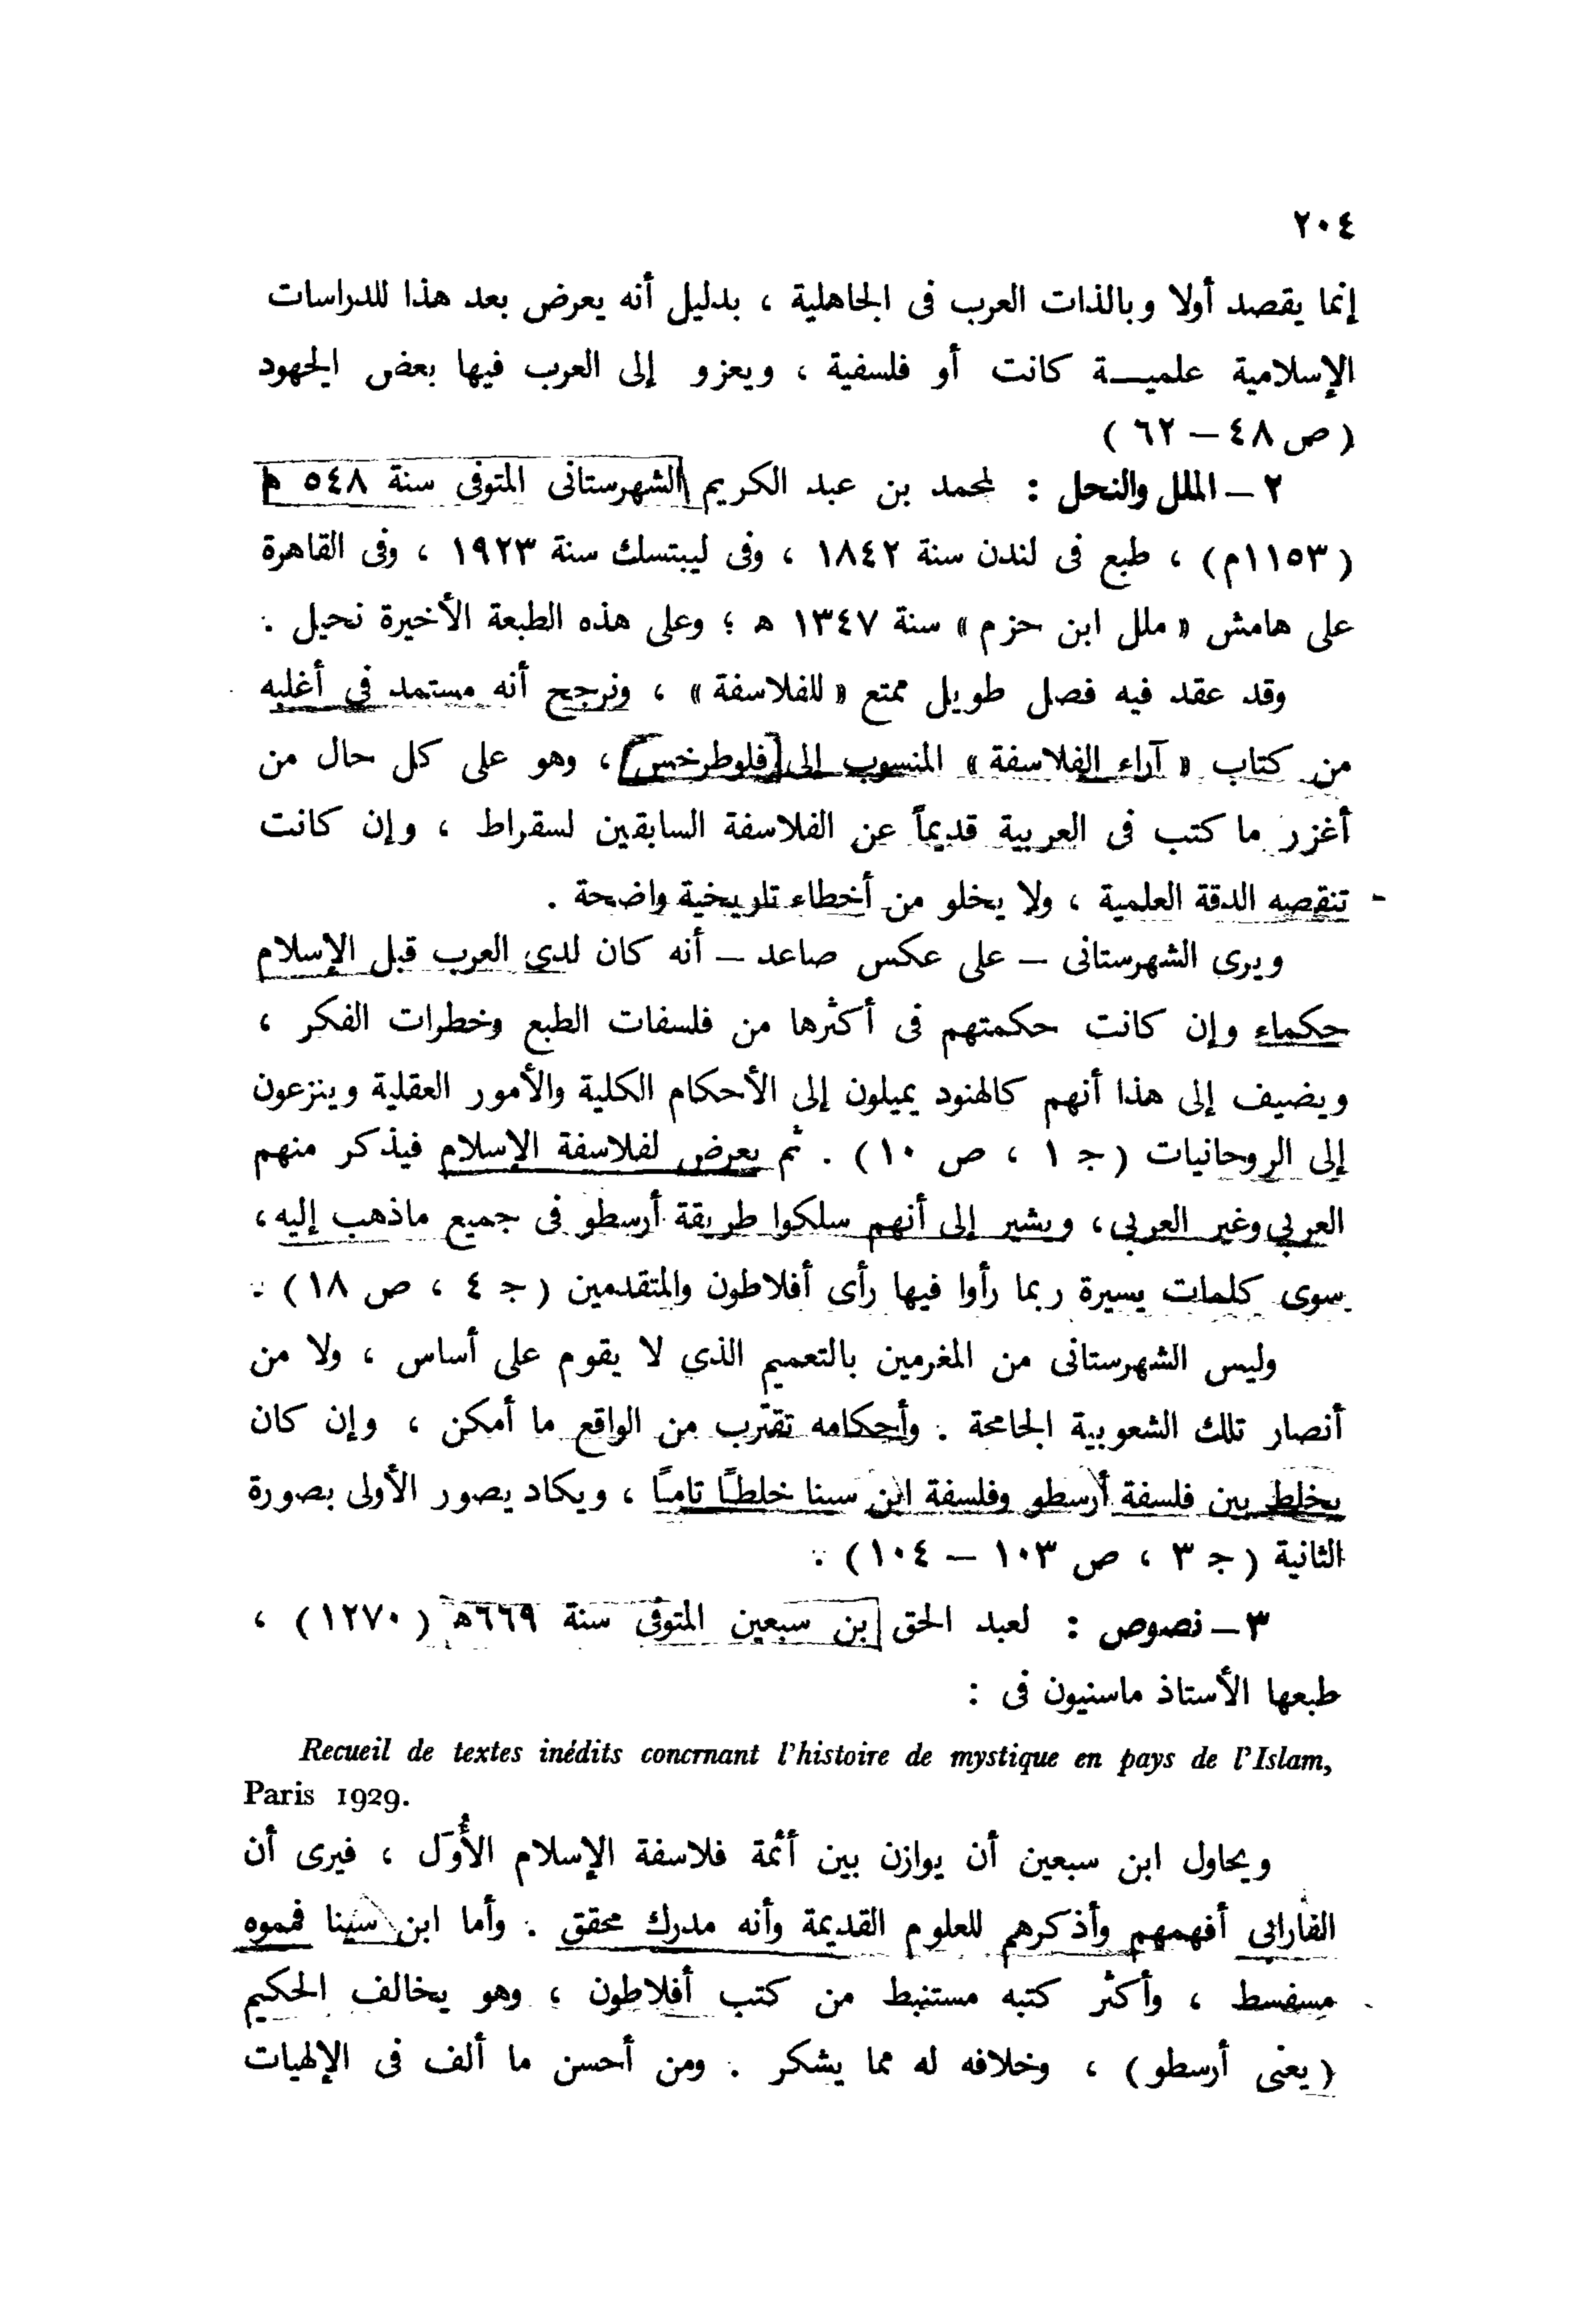 ٢٠٤
إنما يقصد أولا وبالذات العرب فى الجاهلية ، بدليل أنه يعرض بعد هذا للدراسات
الإسلامية علميــة كانت أو فلسفية ، ويعزو إلى العرب فيها بعض الجهود
( ص ٤٨ – ٦٢ )
٢ – الملل والنحل : لمحمد بن عبد الكريم الشهرستانى المتوفى سنة ٥٤٨ ه
( ١١٥٣م ) ، طبع فى لندن سنة ١٨٤٢ ، وفى ليبتسك سنة ١٩٢٣ ، وفى القاهرة
على هامش « ملل ابن حزم » سنة ١٣٤٧ ه ؛ وعلى هذه الطبعة الأخيرة نحيل .
وقد عقد فيه فصل طويل ممتع « للفلاسفة » ، ونرجح أنه مستمد في أغلبه
من كتاب « آراء الفلاسفة » المنسوب إلى [فلوطرخس] ، وهو على كل حال من
أغزر ما كتب فى العربية قديماً عن الفلاسفة السابقين لسقراط ، وإن كانت
تنقصه الدقة العلمية ، ولا يخلو من أخطاء تاريخية واضحة .
ويرى الشهرستانى – على عكس صاعد – أنه كان لدى العرب قبل الإسلام
حكماء وإن كانت حكمتهم فى أكثرها من فلسفات الطبع وخطرات الفكر ،
ويضيف إلى هذا أنهم كالهنود يميلون إلى الأحكام الكلية والأمور العقلية وينزعون
إلى الروحانيات ( ج ١ ، ص ١٠ ) . ثم يعرض لفلاسفة الإسلام فيذكر منهم
العربي وغير العربي ، ويشير إلى أنهم سلكوا طريقة أرسطو فى جميع ماذهب إليه ،
سوى كلمات يسيرة ربما رأوا فيها رأى أفلاطون والمتقدمين ( ج ٤ ، ص ١٨ ) .
وليس الشهرستانى من المغرمين بالتعميم الذي لا يقوم على أساس ، ولا من
أنصار تلك الشعوبية الجامحة . وأحكامه تقترب من الواقع ما أمكن ، وإن كان
يخلط بين فلسفة أرسطو وفلسفة ابن سينا خلطاً تاماً ، ويكاد يصور الأولى بصورة
الثانية ( ج ٣ ، ص ١٠٣ – ١٠٤ ) .
٣ – نصوص : لعبد الحق بن سبعين المتوفى سنة ٦٦٩ه ( ١٢٧٠ ) ،
طبعها الأستاذ ماسنيون فى :
Recueil de textes inédits concrnant l'histoire de mystique en pays de l'Islam,
Paris 1929.
ويحاول ابن سبعين أن يوازن بين أئمة فلاسفة الإسلام الأُوَل ، فيرى أن
الفارابي أفهمهم وأذكرهم للعلوم القديمة وأنه مدرك محقق . وأما ابن سينا فمموه
مسفسط ، وأكثر كتبه مستنبط من كتب أفلاطون ، وهو يخالف الحكيم
( يعنى أرسطو ) ، وخلافه له مما يشكر . ومن أحسن ما ألف فى الإلهيات